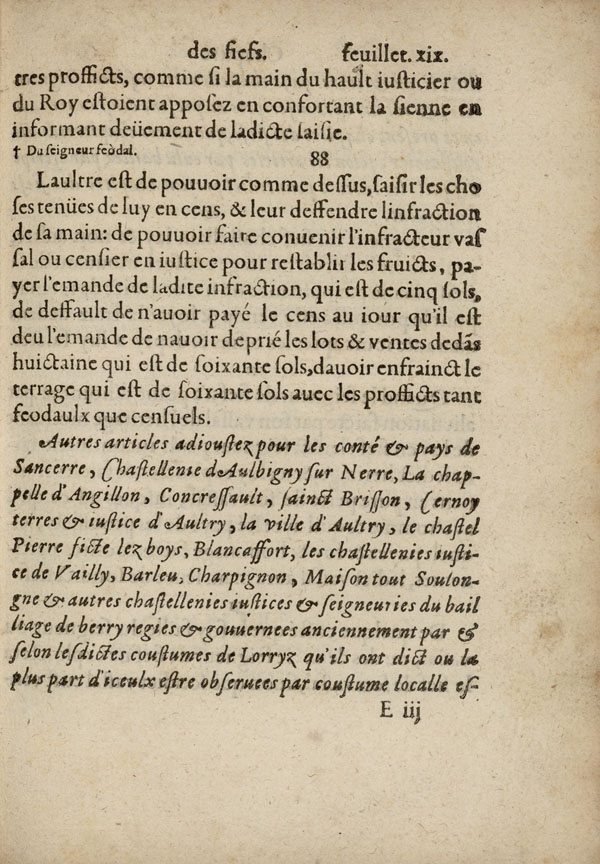 des fiefs. feuillet. xix.
tres proffičts, comme si la main du hault iusticier ou
du Roy estoient apposez en confortant la sienne en
informant deüement de ladicte saisie.
† Du seigneur feodal.
88
Laultre est de pouuoir comme dessus, saisir les cho
ses tenües de luy en cens, & leur deffendre linfraction
de sa main: de pouuoir faire conuenir l'infracteur vas
sal ou censier en iustice pour restablir les fruicts, pa-
yer l'emande de ladite infraction, qui est de cinq sols,
de deffault de n'auoir payé le cens au iour qu'il est
deu l'emande de nauoir de prié les lots & ventes dedãs
huictaine qui est de soixante sols, dauoir enfrainct le
terrage qui est de soixante sols auec les proffiects tant
feodaulx que censuels.
Autres articles adioustez pour les conté & pays de
Sancerre, Chastellenie d'Aulbigny sur Nerre, La chap-
pelle d'Angillon, Concressault, sainct Brisson, Cernoy
terres & iustice d'Aultry, la ville d'Aultry, le chastel
Pierre ficte lez boys, Blancaffort, les chastellenies iusti-
ce de Vailly, Barleu, Charpignon, Maison tout Soulon-
gne & autres chastellenies iustices & seigneuries du bail
liage de berry regies & gouuernees anciennement par &
selon lesdictes coustumes de Lorryz qu'ils ont dict ou la
plus part d'iceulx estre obseruees par coustume localle es-
E iij